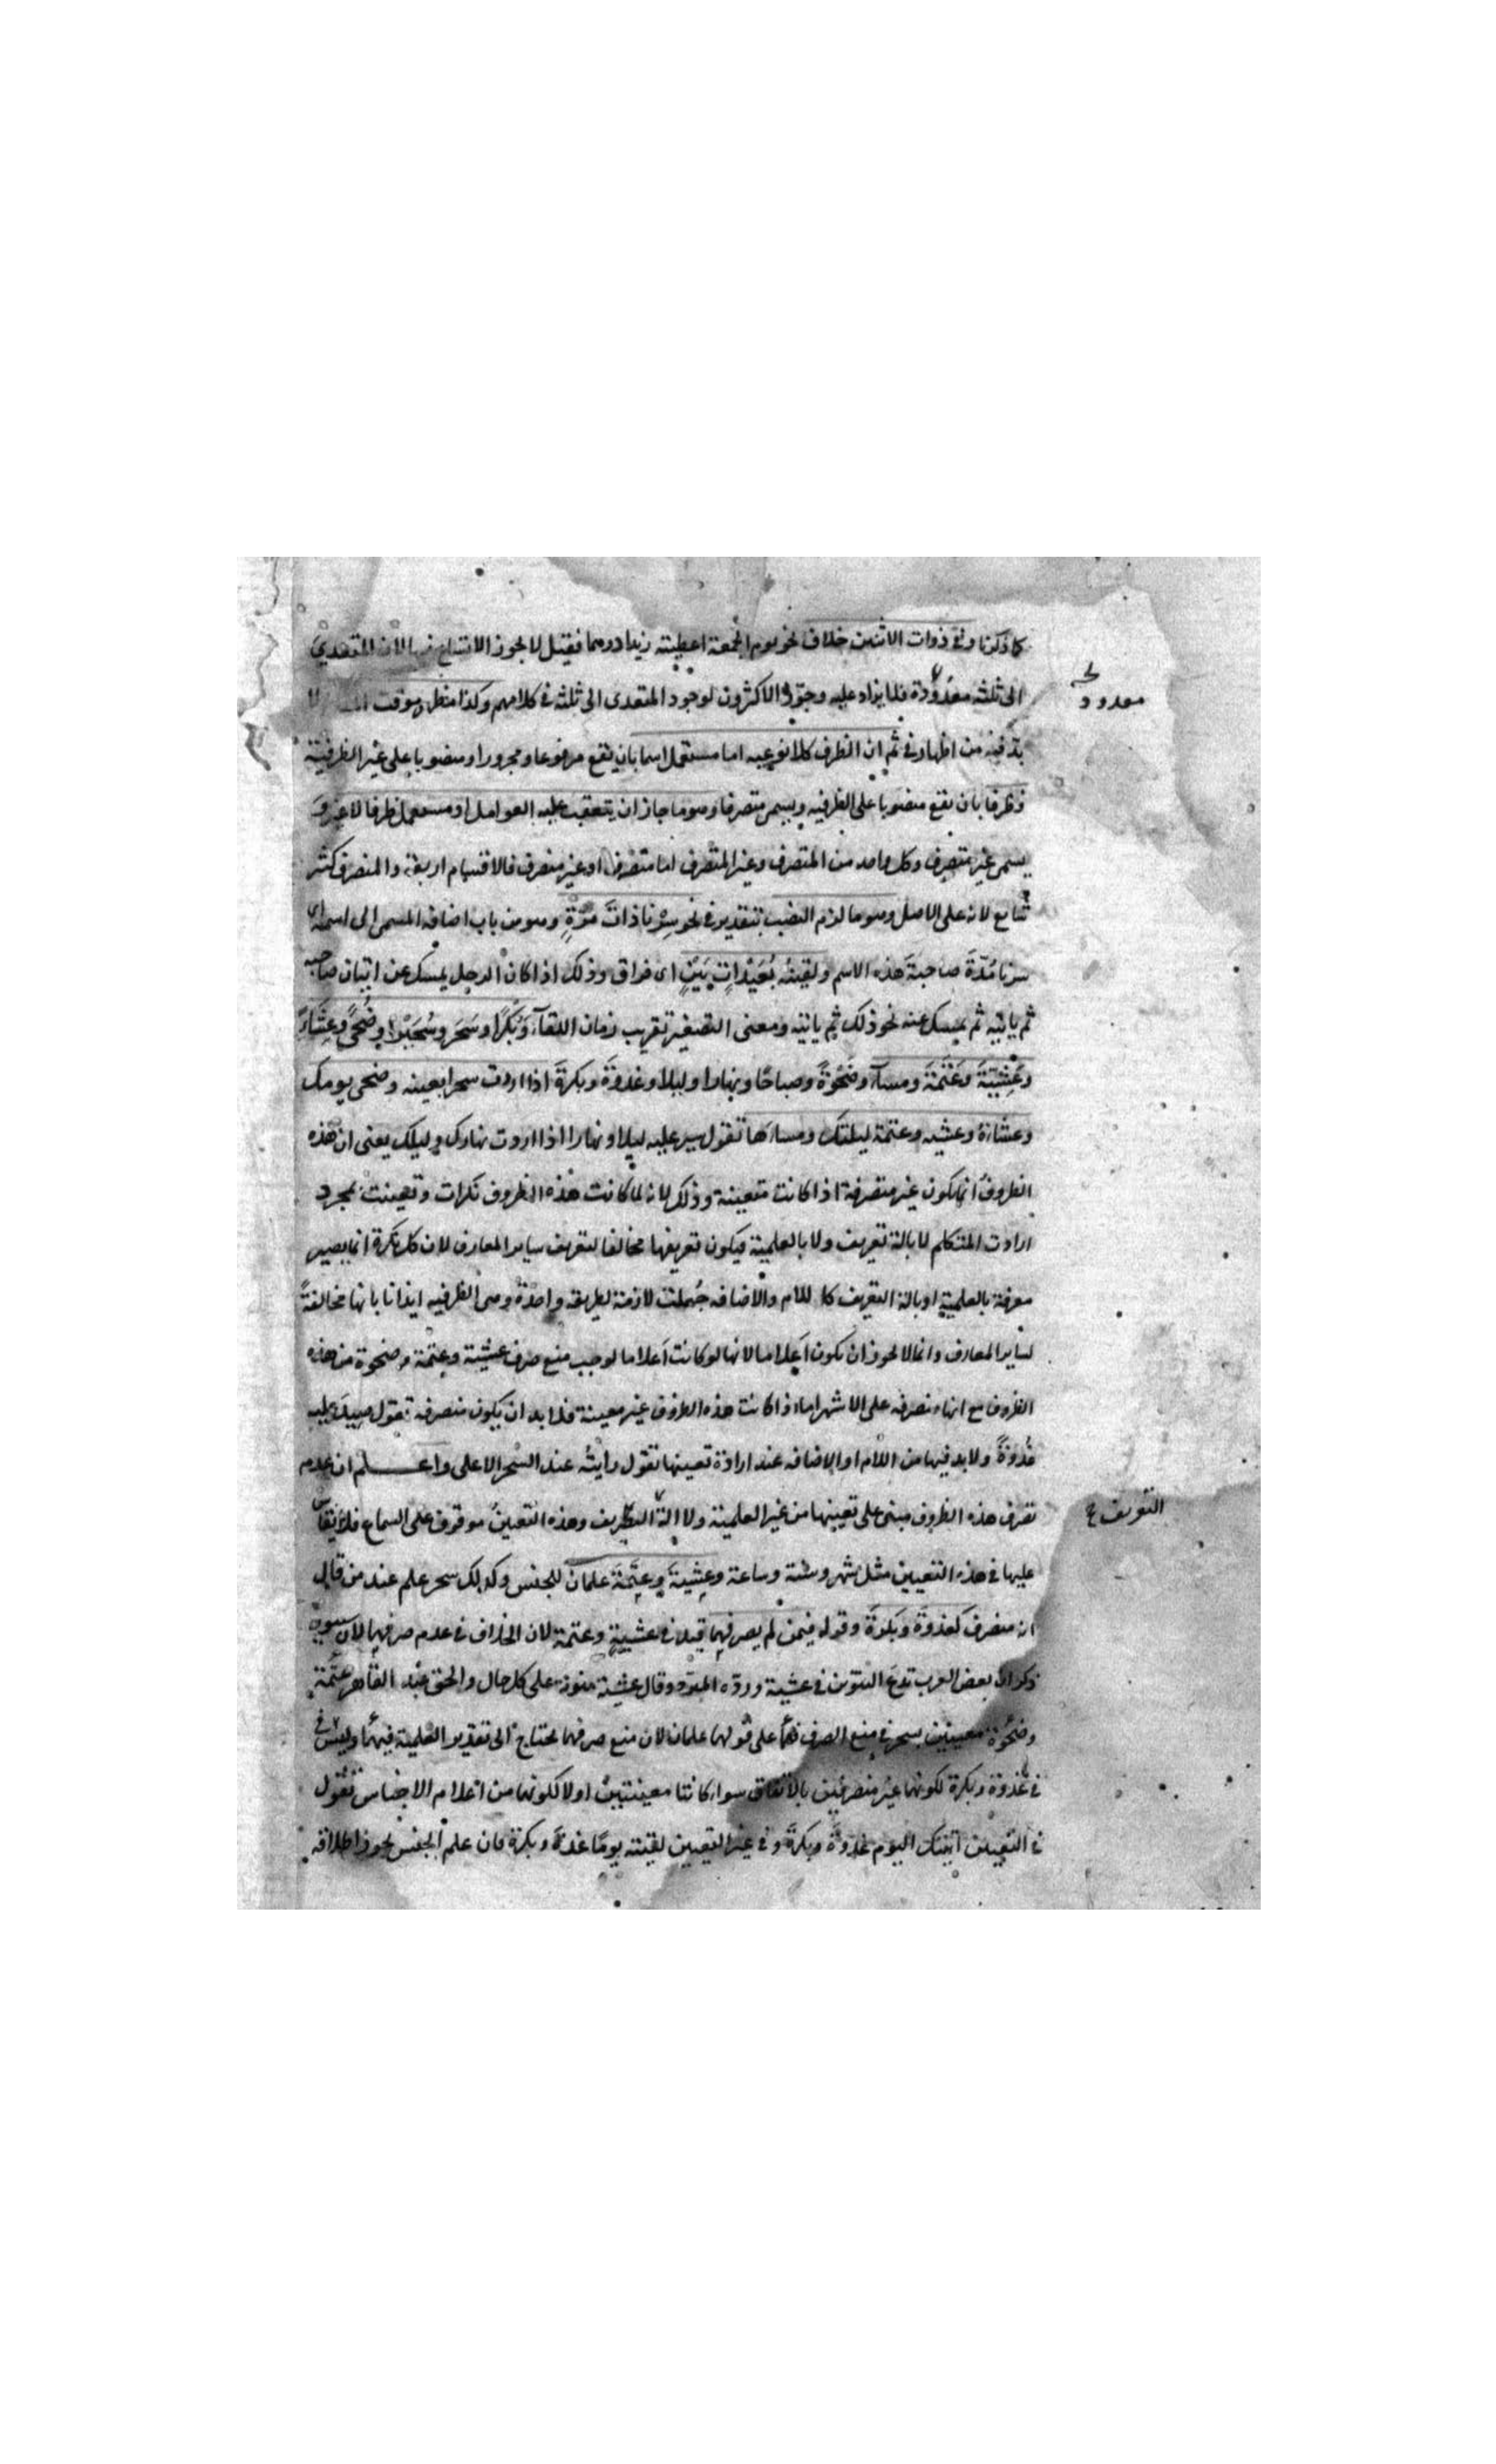 كما ذكرنا وفي ذوات الاثنين خلاف نحو يوم الجمعة اعطيته زيدا درهما فقيل لا يجوز الاتساع فيها لان المتعدي
الى ثلثه معدودة فلا يزاد عليه وجوز الاكثرون لوجود المتعدى الى ثلثة في كلامهم وكذا
معدود
بد فيه من اظهار في ثم ان الظرف كلا نوعيه اما مستعمل اسما بان يقع مرفوعا ومجرورا ومنصوبا على غير الظرفية
وظرفا بان يقع منصوبا على الظرفيه ويسمى متصرفا وهو ما جاز ان يتعقب عليه العوامل او مستعمل ظرفا لا غير و
يسمى غير متصرف وكل واحد من المتصرف وغير المتصرف اما منصرف او غير منصرف فالاقسام اربعة والمنصرف كثير
شايع لانه على الاصل وهو ما لزم النصب بتقدير في نحو سرنا ذات مرة وهو من باب اضافه المسمى الى اسمه اى
سرنا مُدّةَ صاحبةَ هذه الاسم ولقيته بُعَيْداتِ بَيْنٍ اى فراق وذلك اذا كان الرجل يمسك عن اتيان صاحبه
ثم ياتيه ثم يمسك عنه نحو ذلك ثم ياتيه ومعنى التصغير تقريب زمان اللقآء وبُكَرًا وسَحَر وسُحَيْرا وضُحًى وعِشَاءً
وعَشِيّةً وعَتَمَةً ومسآء وضَحْوَةً وصباحًا ونهارا وليلا وغدوةً وبكرةً اذا اردت سحرا بعينه وضحى يومك
وعشاءَهُ وعشيه وعتمة ليلتك ومساءَها تقول سير عليه ليلا ونهارا اذا اردت نهارك وليلك يعنى ان هذه
الظروف انما يكون غير متصرفة اذا كانت متعينة وذلك لانه لما كانت هذه الظروف نكرات وتعينت بمجرد
ارادت المتكلم لا بالة تعريف ولا بالعلمية فيكون تعريفها مخالفا لتعريف ساير المعارف لان كل نكرة انما يصير
معرفة بالعلمية او بالة التعريف كاللام والاضافه جُعلت لازمة لطريقه واحدة وهى الظرفيه ايذانا بانها مخالفةً
لساير المعارف وانما لا يجوز ان يكون اَعلاما لانها لو كانت اَعلاما لوجب منع صرف عشية وعتمة وضحوة من هذه
الظروف مع انها منصرفه على الاشهر اما اذا كانت هذه الظروف غير معينة فلا بد ان يكون متصرفه تقول سير عليه
غُدوَةً ولا بد فيها من اللام او الاضافه عند ارادة تعينها تقول رايتُه عند السّحر الاعلى واعلم ان عدم
تصرف هذه الظروف مبنى على تعيينها من غير العلمية ولا الة التعريف وهذه التعيين موقوف على السماع فلا يقاس
التعريف
عليها في هذه التعيين مثل شهر وسنة وساعة وعشيةَ وعتمَةَ علمان للجنس وكذلك سحر علم عند من قال
انه منصرف كغدوةَ وبكرةَ وقوله فيمن لم يصرفهما قيد في عشيةٍ وعتمة لان الخلاف في عدم صرفهما لان سيبويه
ذكر ان بعض العرب تدع التنوين في عشية وردّه المبرّد وقال عشية منونة على كل حال والحق عبد القاهر عتمة
وضَحْوَة معينتين بسحر في منع الصرف فهما على قولهما علمان لان منع صرفهما يحتاج الى تقدير العلمية فيهما وليس
في غدوة وبكرة لكونهما غير منصرفتين بالاتفاق سواء كانتا معينتين اولا لكونهما من اعلام الاجناس تقول
في التعيين اتيتك اليوم غدوةَ وبكرةَ وفي غير التعيين لقيته يومًا غدوة وبكرة فان علم الجنس يجوز اطلاقه